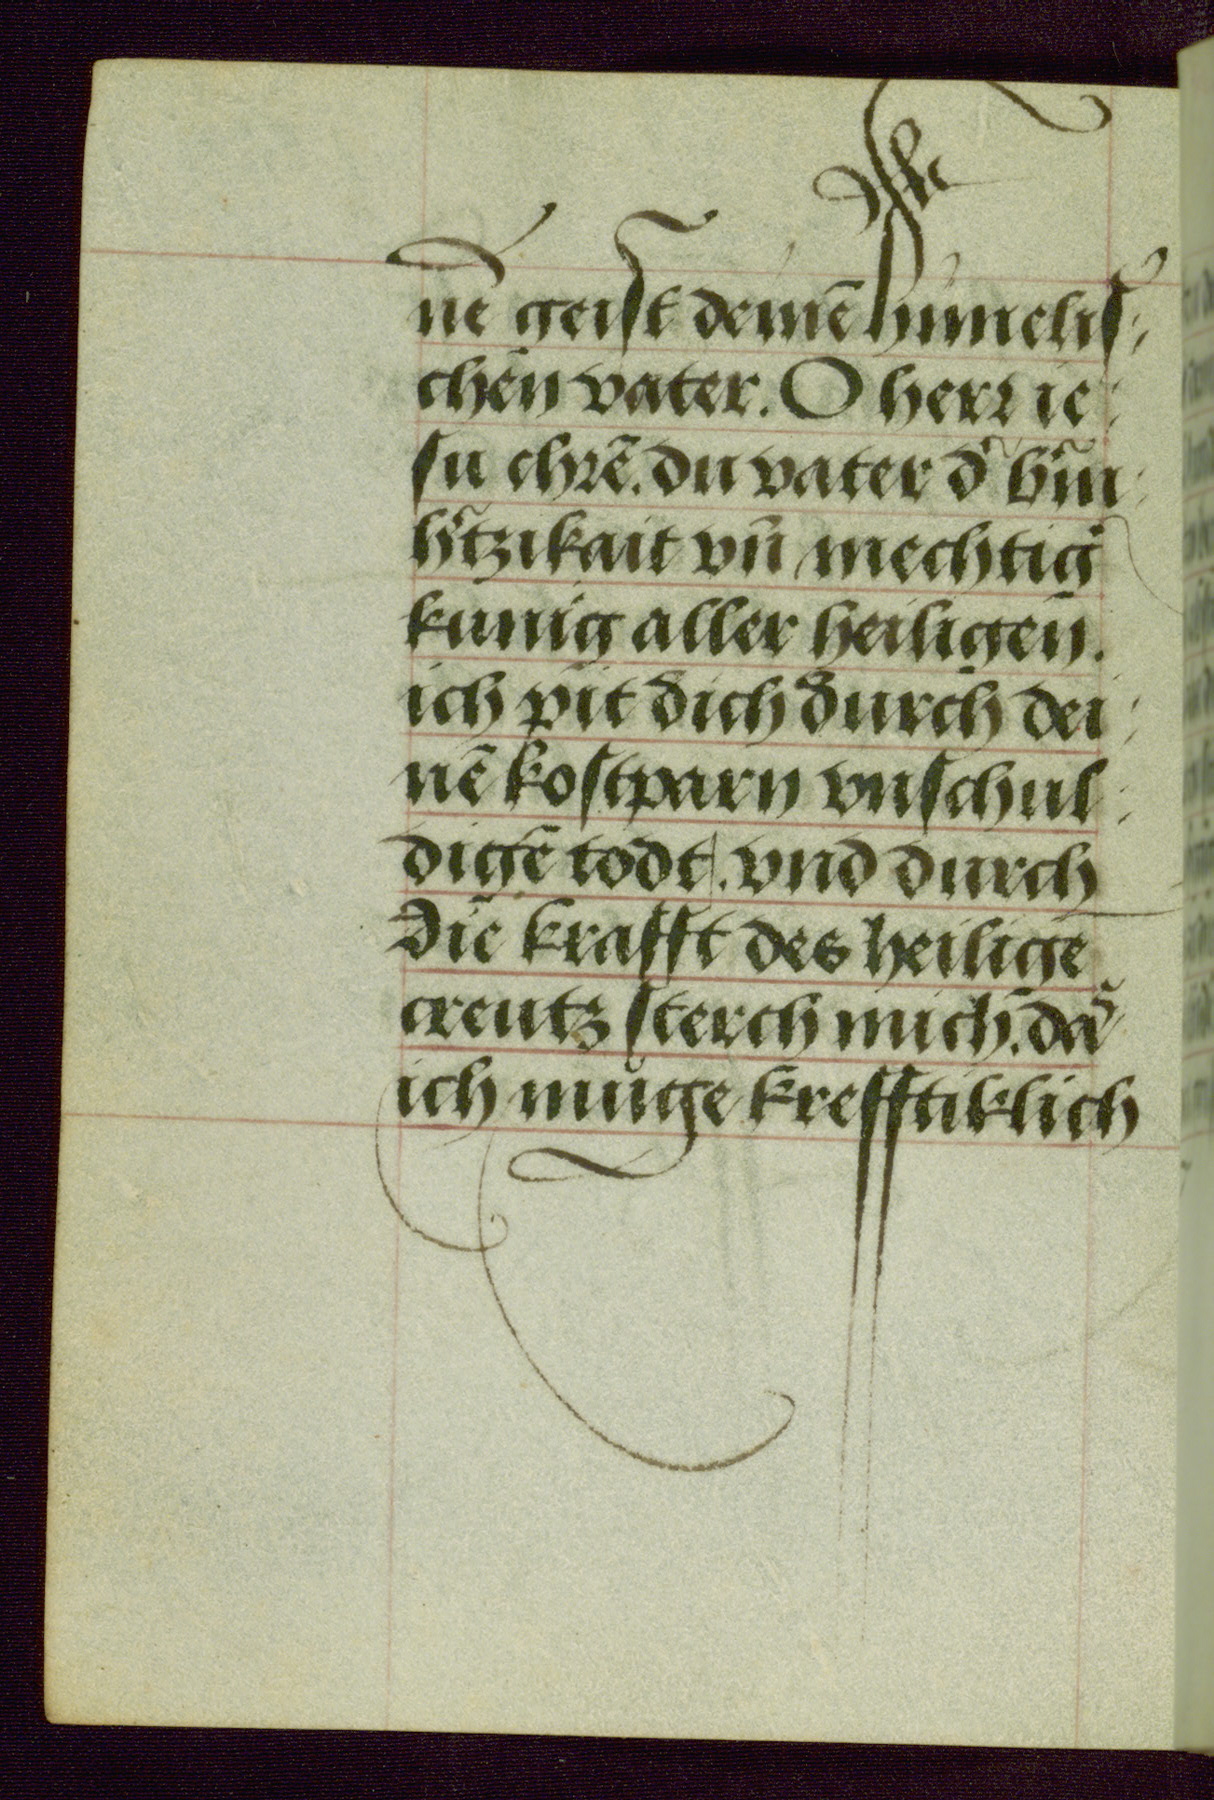 nē geiſt deinē himeliſ:
chen vater. O herꝛ ie:
ſu chꝛē. du vater d᷑ b᷑m:
h᷑tzikait vn̄ mechtig᷑
kunig aller heiligen.
ich pit dich durch dei:
nē koſtparn vnſchul:
digē todt. vnd durch
die krafft des heiligē
creutz ſterch mich. da᷑
ich muge krefftiklich